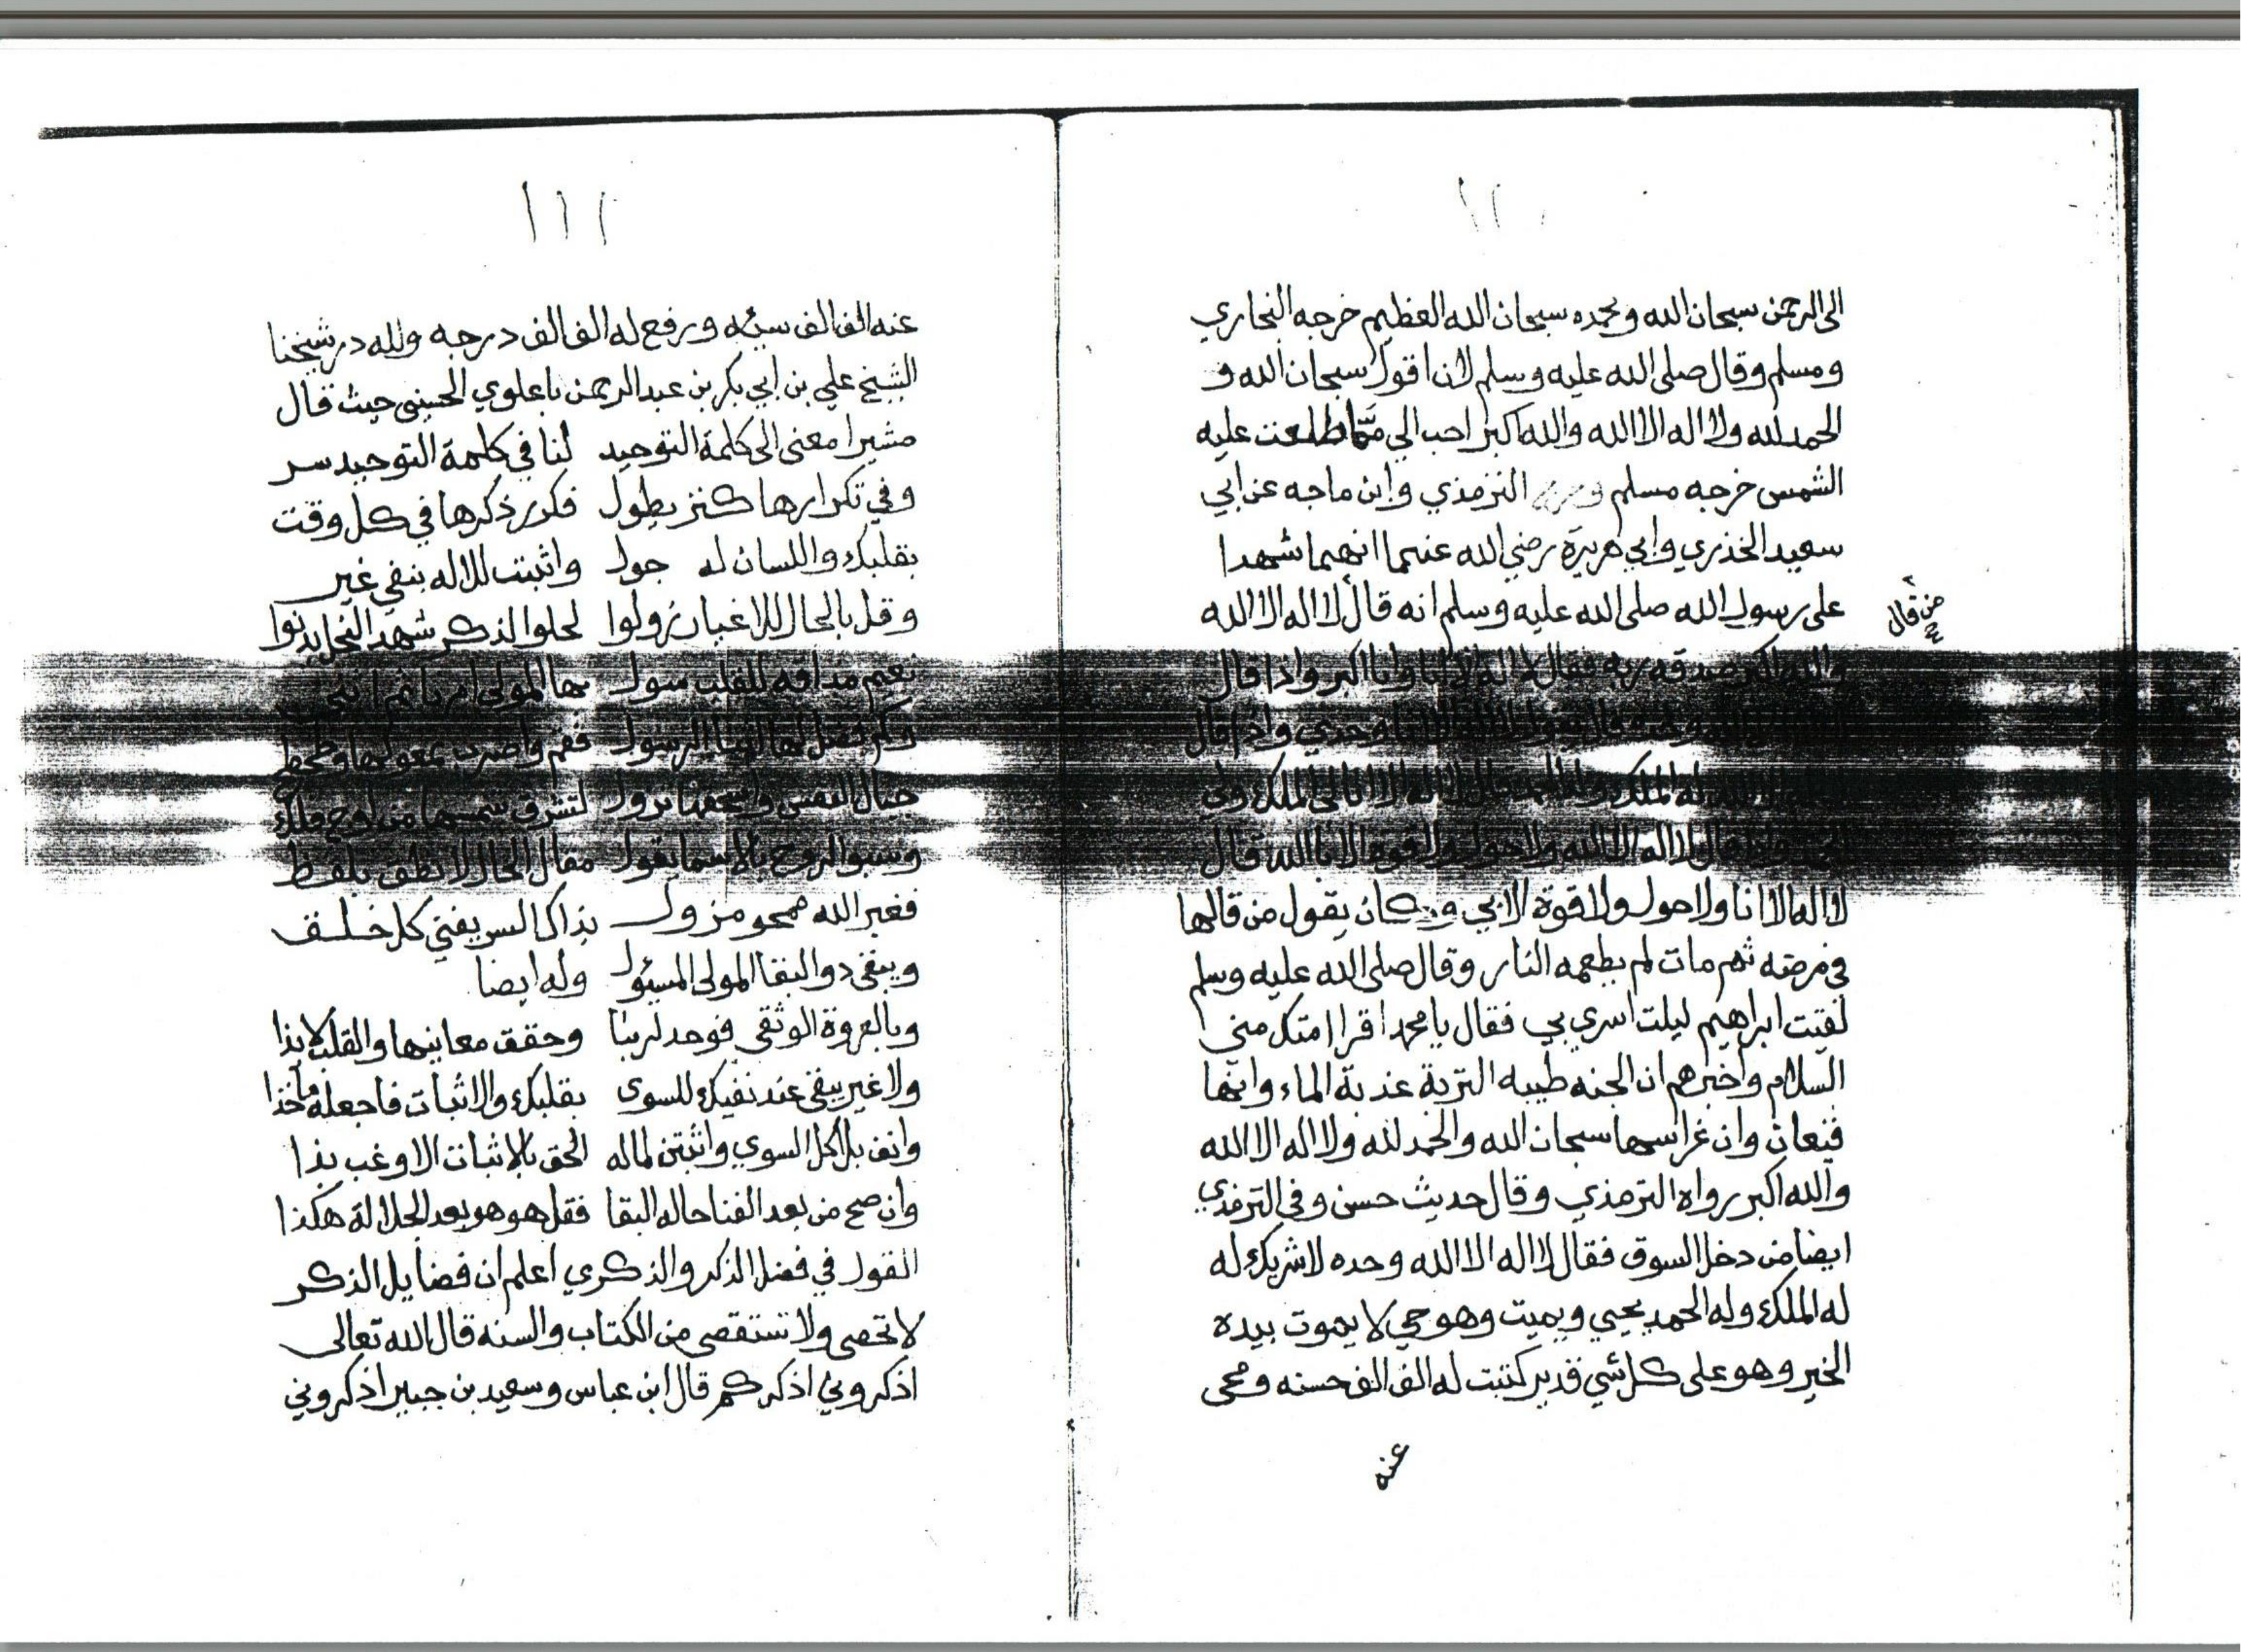 ١١٠
الى الرحمن سبحان الله وبحمده سبحان الله العظيم خرجه البخاري
ومسلم وقال صلى الله عليه وسلم لان اقول سبحان الله و
الحمد لله ولا اله الا الله والله اكبر احب الي مما طلعت عليه
الشمس خرجه مسلم الترمذي وابن ماجه عن ابي
سعيد الخذري وابي هريرة رضي الله عنهما انهما شهدا
على رسول الله صلى الله عليه وسلم انه قال لا اله الا الله
من قال
والله اكبر صدقه ربه فقال لا اله الا انا وانا اكبر واذا قال
وحدي واذا قال
له الملك وله الحمد قال لا اله الا انا لي الملك ولي
الحمد واذا قال لا اله الا الله ولا حول ولا قوة الا بالله قال
لا اله الا انا ولا حول ولا قوة الا بي وكان يقول من قالها
في مرضه ثم مات لم يطعمه النار وقال صلى الله عليه وسلم
لقيت ابراهيم ليلت اسري بي فقال يا محمد اقرا امتك مني
السلام واخبرهم ان الجنه طيبه التربة عذبة الماء وانها
قيعان وان غراسها سبحان الله والحمد لله ولا اله الا الله
والله اكبر رواه الترمذي وقال حديث حسن وفي الترمذي
ايضا من دخل السوق فقال لا اله الا الله وحده لا شريك له
له الملك وله الحمد يحيي ويميت وهو حي لا يموت بيده
الخير وهو على كل شي قدير كتبت له الف الف حسنه ومحى
عنه
١١١
عنه الف الف سيئه ورفع له الف الف درجه ولله در شيخنا
الشيخ علي بن ابي بكر بن عبد الرحمن باعلوي الحسيني حيث قال
مشيرا معنى الى كلمة التوحيد لنا في كلمة التوحيد سر
وفي تكرارها كنز يطول فكرر ذكرها في كل وقت
بقلبك واللسان له جول واثبت للاله بنفي غير
وقل بالحال للاغيار زولوا لحلو الذكر شهد النحل يدنوا
نعيم مذاقه للقلب سول بها المولى
وكم فضل لها الرسول فقم واضرب بمعولها وحطم
جبال النفس لتشرق شمسها من اوج فلك
الروح بالاسما يقول مقال الحال لا نطق بلفظ
فغير الله ممحو مزول بذاك السر يفني كل خلق
ويبقى ذو البقا المولى المسئول وله ايضا
وبالعروة الوثقى فوحد لربنا وحقق معانيها والقلب لابذا
ولا غير يبقى عند نفيك للسوى بقلبك والاثبات فاجعله مأخذا
وانف بلا كل السوي واثبتن لماله الحق بالاثبات الا وغب بذا
وان صح من بعد الفنا حاله البقا فقل هو هو بعد الجلالة هكذا
القول في فضل الذكر والذكرى اعلم ان فضايل الذكر
لا تحصى ولا تستقصى من الكتاب والسنه قال الله تعالى
اذكروني اذكركم قال ابن عباس وسعيد بن جبير اذكروني